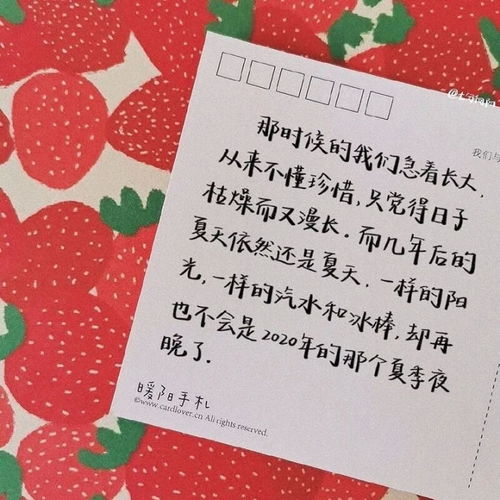 我们与
那时候的我们急着长大,
从来不懂珍惜,只觉得日子
枯燥而又漫长.而几年后的
夏天依然还是夏天,一样的阳
光,一样的汽水和冰棒,却再
也不会是2020年的那个夏季夜
晚了.
暖阳手札
©www.cardlover.cn All rights reserved.